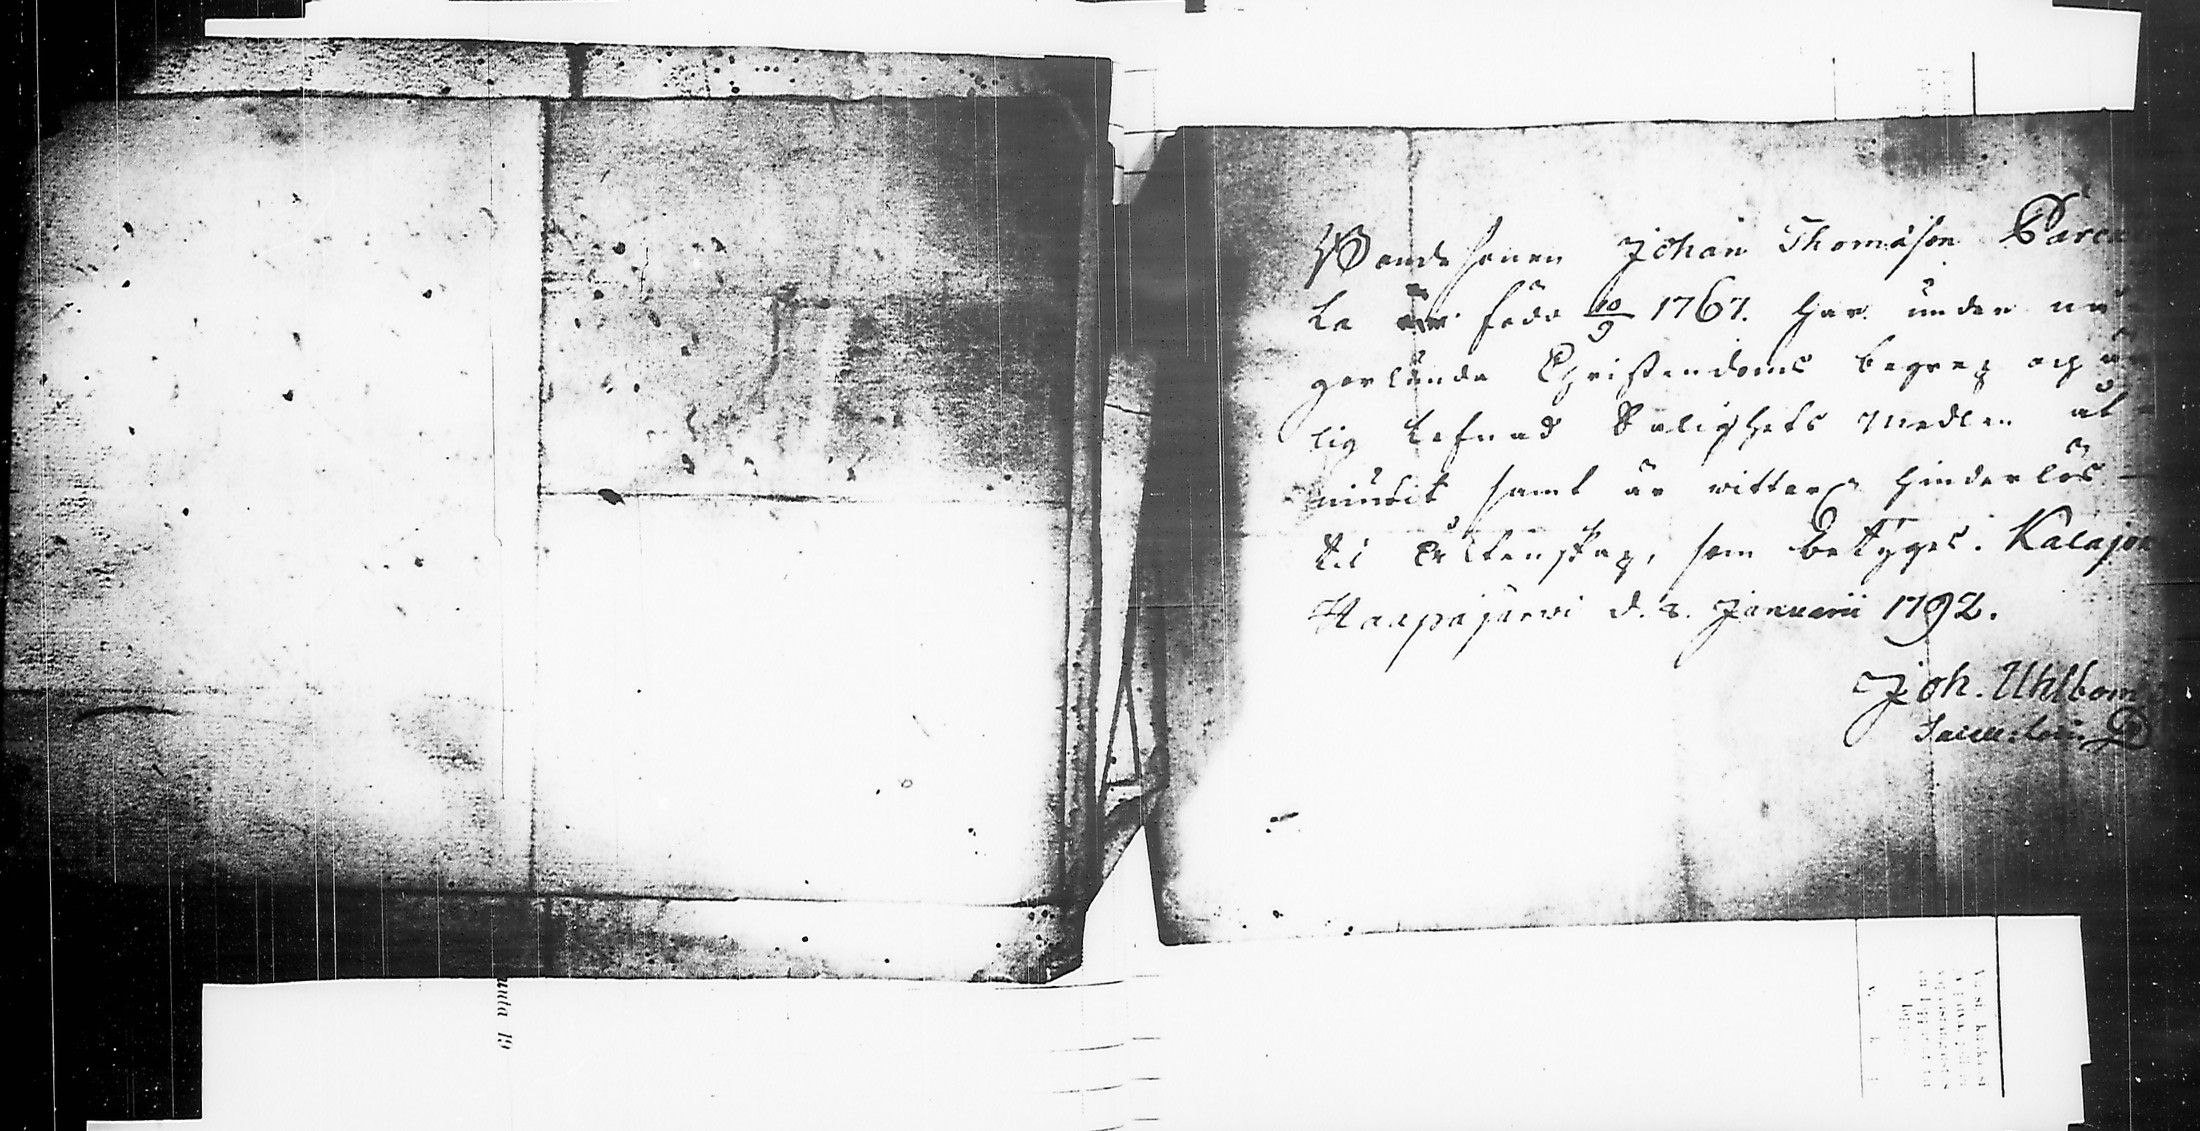 Bondesonen Johan Thomasson Parca
la är född 10/9 1767. har under nå
gorlunda Christendoms begrep och är
lig lefnad Salighets Medlen åt
niutit samt är witterl. hinderlös
til Ecktenskap, som betyges. Kalajoki
Haapajärwi d. 8. Januarii 1792.
Joh. Uhlbom
nuta 19